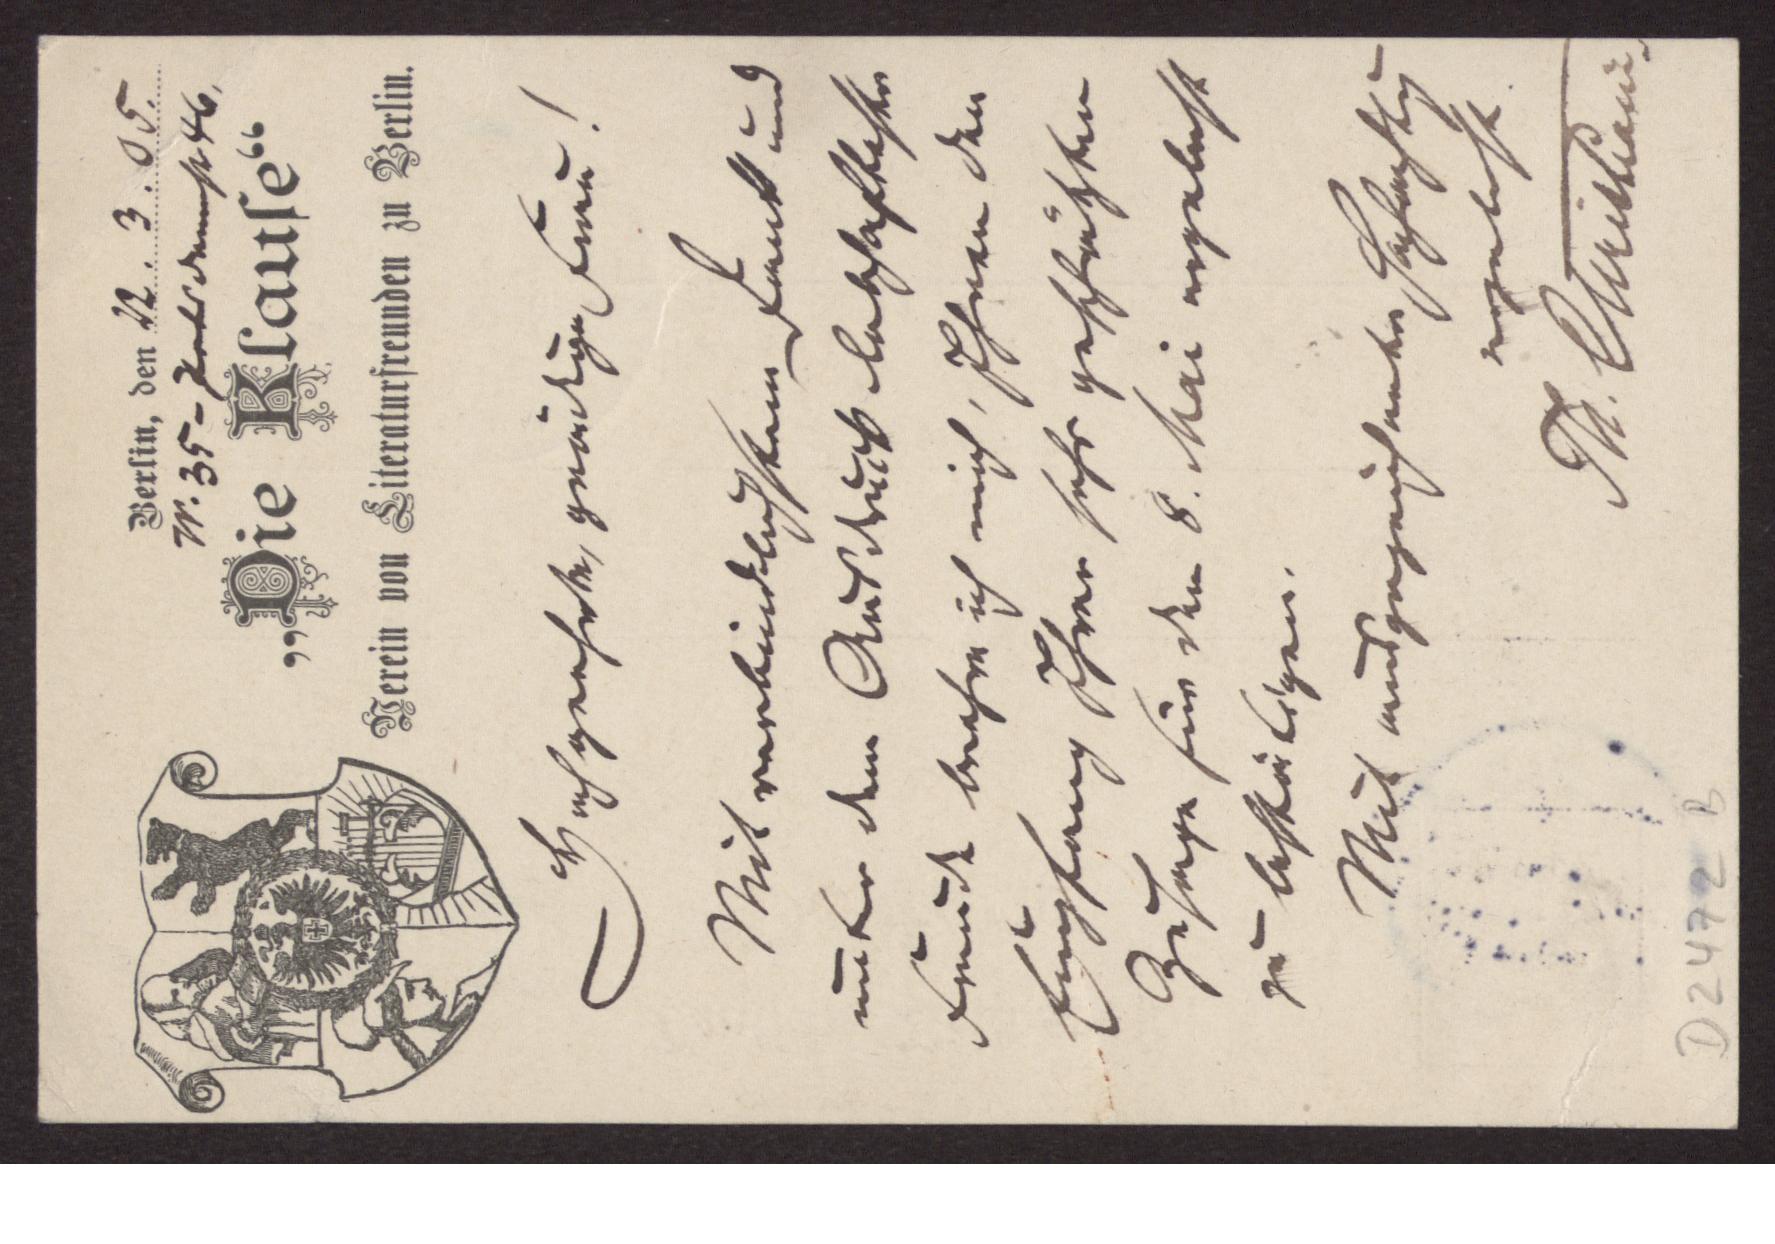 Berlin, den 22. 3. 05.
W. 35 - Potsdamerstr 46.
„Die Klause“
Verein von Literaturfreunden zu Berlin.
Hochgeehrte, gnädige Frau!
Mit verbindlichstem Dank und
unter dem Ausdruck lebhaftester
Freude beehre ich mich, Ihnen den
Empfang Ihrer sehr geschätzten
Zusage für den 8. Mai ergebenst
zu bestätigen.
Mit ausgezeichneter Hochachtung
ergebenst
Th. Christiani.
D 2472 B